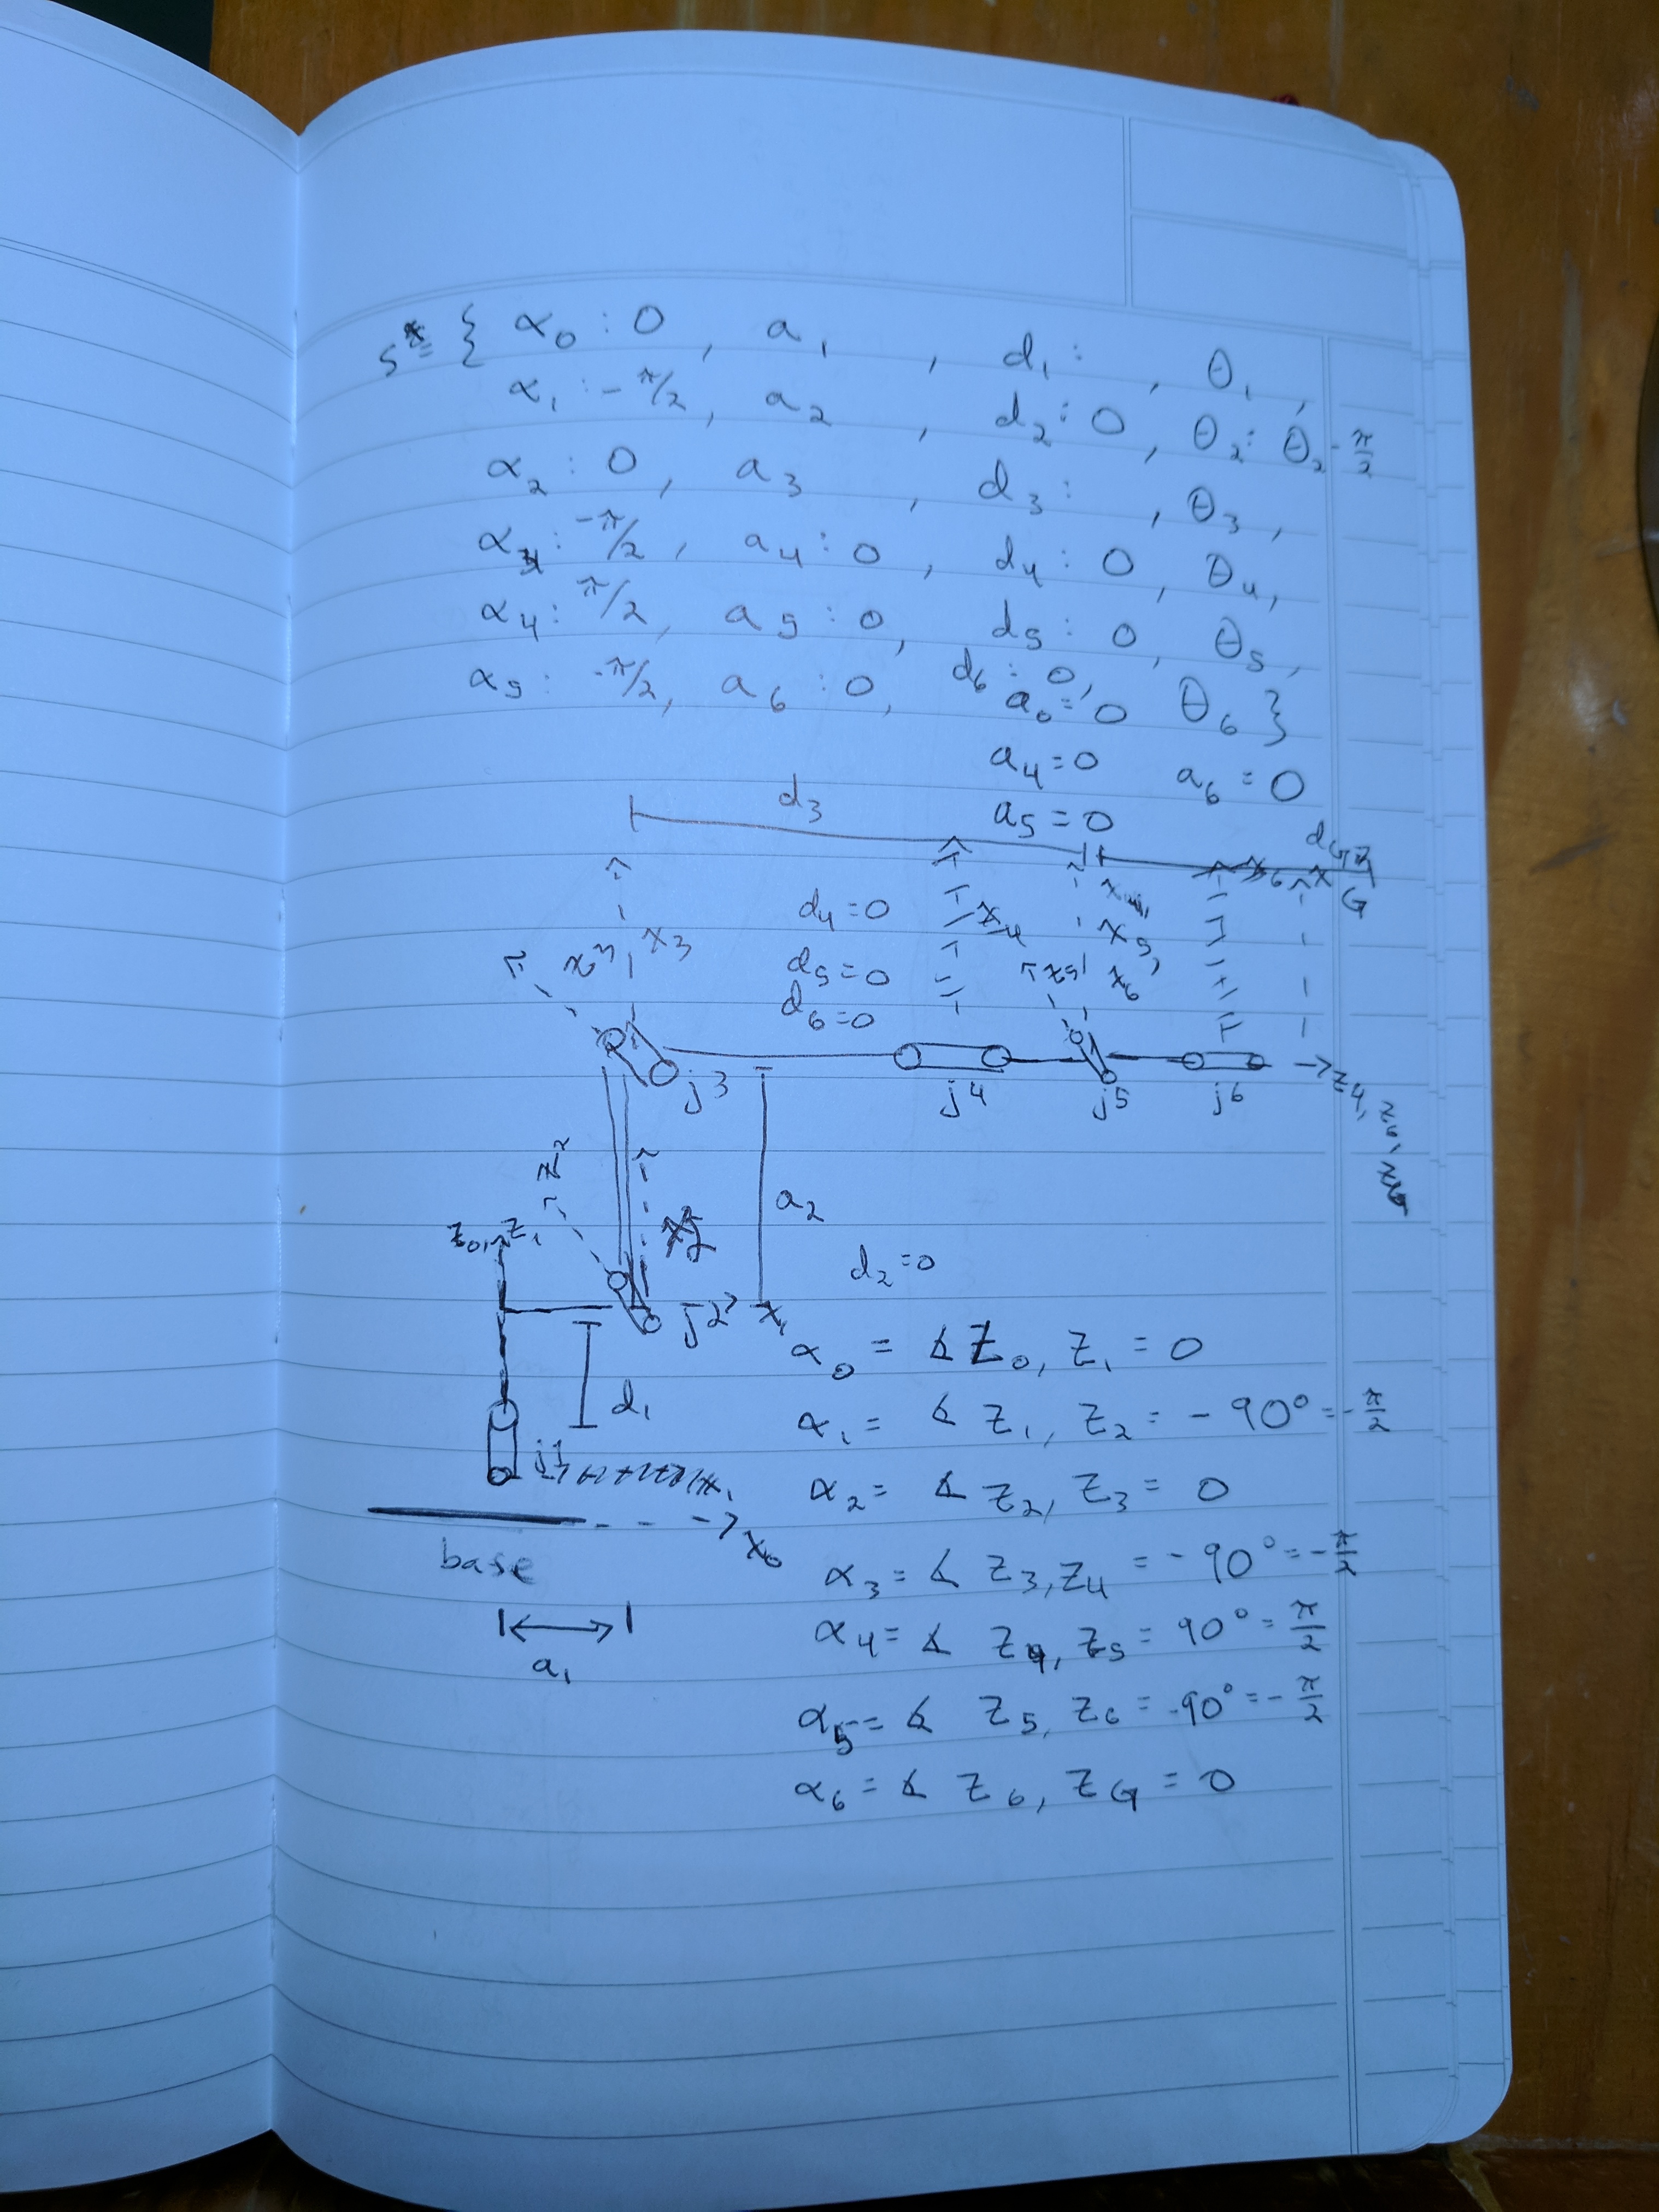 s = { α₀ : 0 , a₁ , d₁ : , θ₁ ,
α₁ : -π/2 , a₂ , d₂ : 0 , θ₂ : θ₂ - π/2
α₂ : 0 , a₃ , d₃ : , θ₃ ,
α₃ : -π/2 , a₄ : 0 , d₄ : 0 , θ₄ ,
α₄ : π/2 , a₅ : 0 , d₅ : 0 , θ₅ ,
α₅ : -π/2 , a₆ : 0 , d₆ : 0 , θ₆ }
a₀ = 0
a₄ = 0 a₆ = 0
a₅ = 0
d₃
d_G
x_G
d₄ = 0
d₅ = 0
d₆ = 0
x₃
x₅,
z₅
j3
j4
j5
j6
z₄, z₆, z_G
z₂
a₂
z₀, z₁
x₂
d₂ = 0
j2
x₁
d₁
j1
x₀
base
a₁
α₀ = ∡ z₀, z₁ = 0
α₁ = ∡ z₁, z₂ = -90° = -π/2
α₂ = ∡ z₂, z₃ = 0
α₃ = ∡ z₃, z₄ = -90° = -π/2
α₄ = ∡ z₄, z₅ = 90° = π/2
α₅ = ∡ z₅, z₆ = -90° = -π/2
α₆ = ∡ z₆, z_G = 0